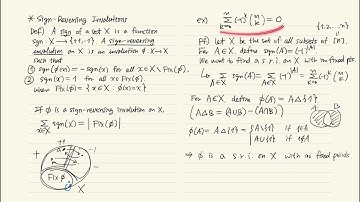 * Sign-Reversing Involutions
Def) A sign of a set X is a function
sgn: X → {+1, -1}. A sign-reversing
involution on X is an involution φ: X → X
such that
① sgn(φ(x)) = - sgn(x) for all x ∈ X \ Fix(φ).
② sgn(x) = 1 for all x ∈ Fix(φ).
where Fix(φ) = {x ∈ X : φ(x) = x}
If φ is a sign-reversing involution on X,
∑ sgn(x) = | Fix(φ) |.
x∈X
+1
-1
+
-
Fix φ
X
ex) ∑ (-1)^k (n k) = 0
k=0
{1,2,…,n}
pf) Let X be the set of all subsets of [n].
For A ∈ X, define sgn(A) = (-1)^|A|
We want to find a s.r.i. on X with no fixed points.
∑ sgn(A) = ∑ (-1)^|A| = ∑ (-1)^k (n k)
For A ∈ X, define φ(A) = A Δ {1}
(A Δ B = (A∪B) - (A∩B))
A B
φ(A) = A Δ {1} = { A \ {1} if 1 ∈ A
A ∪ {1} if 1 ∉ A
⇒ φ is a s.r.i. on X with no fixed points